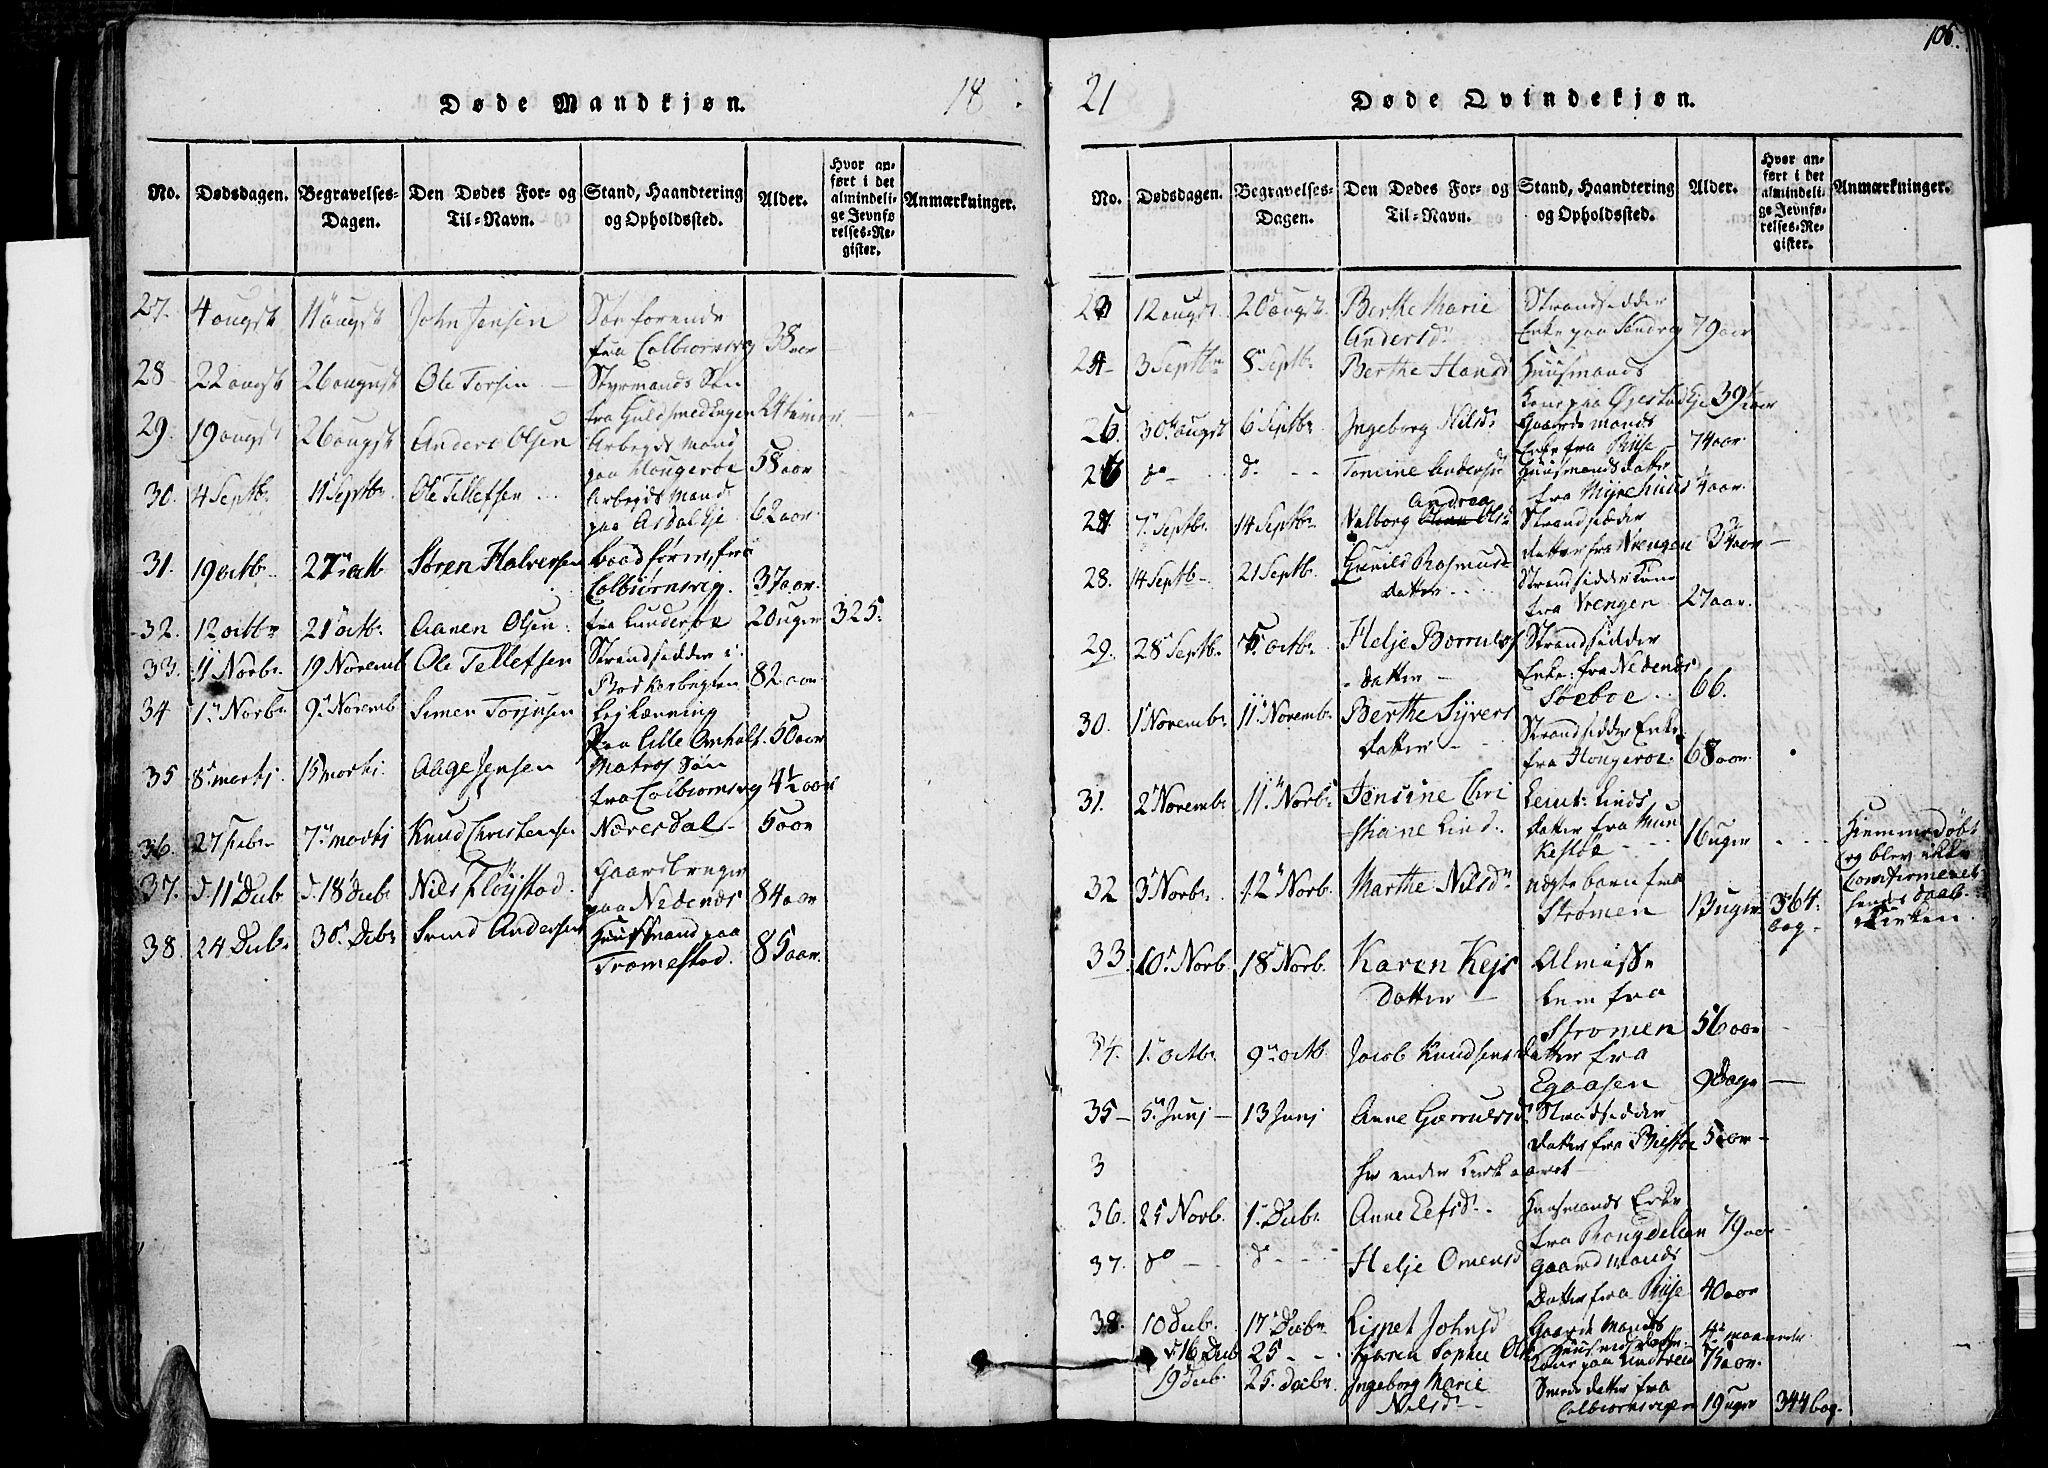 Døde Mandkjøn.
18
No.
Dødsdagen.
Begravelses-
Dagen.
Den Dødes For- og
Til-Navn.
Stand, Haandtering
og Opholdssted.
Alder.
Hvor an-
ført i det
almindeli-
ge Jevnfø-
relses-Re-
gister.
Anmærkninger.
27. 4 augst 11 augst John Jensen
fra Colbiornsvig 38 aar
28 22 augst 26 august Ole Torsen Styrmands Søn
fra Guldsmedengen 24 timer
29. 19 augst 26 augst Anders Olsen Arbeyds Mand
paa Hougerøe 58 aar
30. 4 Septbr 11 Septbr. Ole Tellefsen Arbeyds Mand
paa Asdal Eje 62 aar.
31. 19 octb. 27 octb Søren Halversen baadfører, fra
Colbiornsvig. 37 aar.
32. 12 octbr 21 octb. Aanen Olsen fra Lundersøe 20 uger 325.
33. 11 Novbr 19 Novemb Ole Tellefsen Strandsidder i
Bodkerbugten 82 aar
34 1 Novbr 9 Novemb Simen Torjusen Lejlænning
paa Lille Omholt. 50 aar
35 8 martj. 15 martj. Aage Jensen Matros Søn
fra Colbiornsvig 4½ aar
36. 27 Febr 7 martj Knud Christensen Næresdal 5 aar
37. d. 11 Decb d. 18 Decb Niels Fløystad. Gaardbruger
paa Nedenæs 84 aar
38. 24 Decb. 30 Decb Svend Andersen Huusmand paa
Tromestad. 85 aar.
21
Døde Qvindekjøn.
106.
No.
Dødsdagen.
Begravelses-
Dagen.
Den Dødes For- og
Til-Navn.
Stand, Haandtering
og Opholdssted.
Alder.
Hvor an-
ført i det
almindeli-
ge Jevnfø-
relses-Re-
gister.
Anmærkninger.
23 12 augst. 20 augst. Berthe Marie Strandsidder
Andersd. Enke paa Sandvig 79 aar
24 3 Septbr 8 Septbr. Berthe Hansd Huusmands
Kone paa Øjestad Eje 39 aar
25. 30 augst 6 Septbr Ingeborg Nilsd. Gaardmands
Enke fra Rise 74 aar.
26 do do Tomine Andersd Huusmands datter
fra Myrehuus aar.
Andrea
27 7 Septbr. 14 Septbr Valborg Olsd Strandsidder
datter fra Vrengen aar
28. 14 Septb 21 Septbr. Gunild Rasmus Strandsidder Kone
datter fra Vrengen 27 aar.
29. 28 Septbr. 5 octbr. Helje Borrulfs Strandsidder
datter Enke fra Nedenæs
Søeboe 66.
30. 1 Novembr. 11 Novembr. Berthe Syvers
datter Strandsidder Enke
fra Hougerøe. 68 aar.
31. 2 Novemb. 11 Novbr Jensine Chri Leint: Linds
stiane Lind. datter fra Mun
kestøe 16 uger Hiemmedøbt
og blev ikke
32 3 Novbr. 12 Novb. Marthe Nilsd. uægte barn fra
Strømen 13 uger 364.
bag Confirmeret
hendes daab
i Kirken.
33. 10 Novb. 18 Novb. Karen Kejs Almisse
Datter lem fra
Strømen 56 aar
34. 1 octbr. 9 octb. Jacob Knudsens datter fra
Egaasen 9 Dage
35 5 Junj 13 Junj Anne Gierrulsd. Stradsidder
datter fra Biestøe 5 aar
3 her ender Kirkeaaret
36. 25 Novb. 1 Decb. Anne Lefsd. Huusmands Enke
fra Rougdellen 79 aar
37. do do Helje Omensd Gaardmands
Datter fra Rise 40 aar
38. 10 Decb. 17 Decbr Lispet Johnsd Gaardmands
Datter 4 maaneder
d 16 Decb 25 Karen Sophie Ols Huusmands
Kone paa 75 aar.
19 Decb. 25. Decbr. Ingeborg Marie datter fra
Nilsd. Colbiornsvigen 19 uger 344 bag.